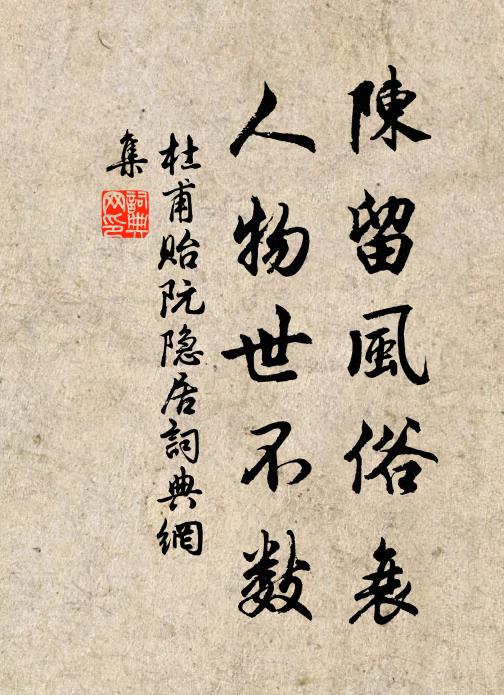 陳留風俗衰
人物世不數
杜甫貽阮隐居詞典網
集
詞典
网印